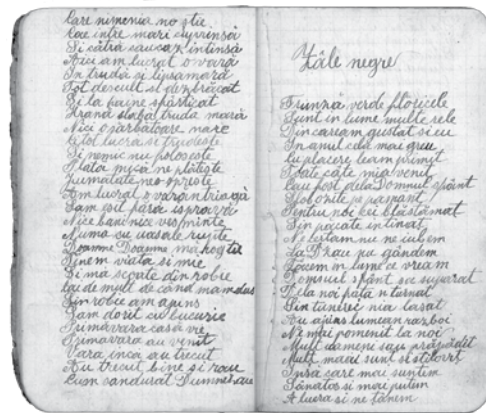 Care nimenia no știe
Cae intre mari cuprinsă
Și cătră caucaz intinsă
Aeu am lucrat o vară
In trudă si lipsamară
Tot desculț si dezbrăcat
Si la haine spărticat
Hrană slabă truda mară
Nici osărbătoare mare
Ci tot lucra si trudește
Si nemic nu polosește
Plata mică ne plătește
Jumatate neo oprește
Am lucrat o vară
Sam esit fara isprava
Nice bani nice vesminte
Numa cu vasale rupte
Doamne Doamne mă rog ție
Tinem viata si mie
Si mă scoate din robie
Că de mult de când mam dus
Sin robie am ajuns
Sam dorit cu bucurie
Primăvara casă vie
Primăvara au venit
Vara inca au trecut
Au trecut bine si rău
Cum candurat Dumnezău
Zâle negre
Frunză verde floricele
Sunt in lume multe rele
Din caream gustat si eu
In anul cela mai greu
Cu placere leam primit
Toate câte miavenit
Cau fost dela Domnul sfânt
Slobozite pe pamant
Pentru noi cei blăstămat
Sin păcate intinat
Ne certam nu ne iubem
La D nu gândem
Făcem in lume ce vream
Domnul sfânt sa suparat
Pela noi pâta n turnat
Sin tuneric nia lasat
Au ajuns lumean razboi
Ne mai pomenit la noi
Mult oameni sau prăpădit
Mulț maai sunt si
Însă care mai suntem
Sănatos si mai putem
A lucra si ne tânem